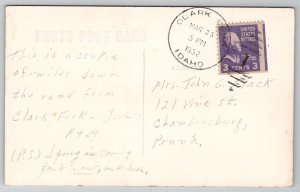 PHOTO POST CARD
CLARK
MAR 25
5 PM
1952
IDAHO
UNITED STATES
POSTAGE
3 CENTS 3
This is a couple
of miles down
the road from
Clark Fork.
Mrs. John G.
121 Vine St.
Chambersburg,
Penn'a,
(P.S.) Spring is coming
fast now,